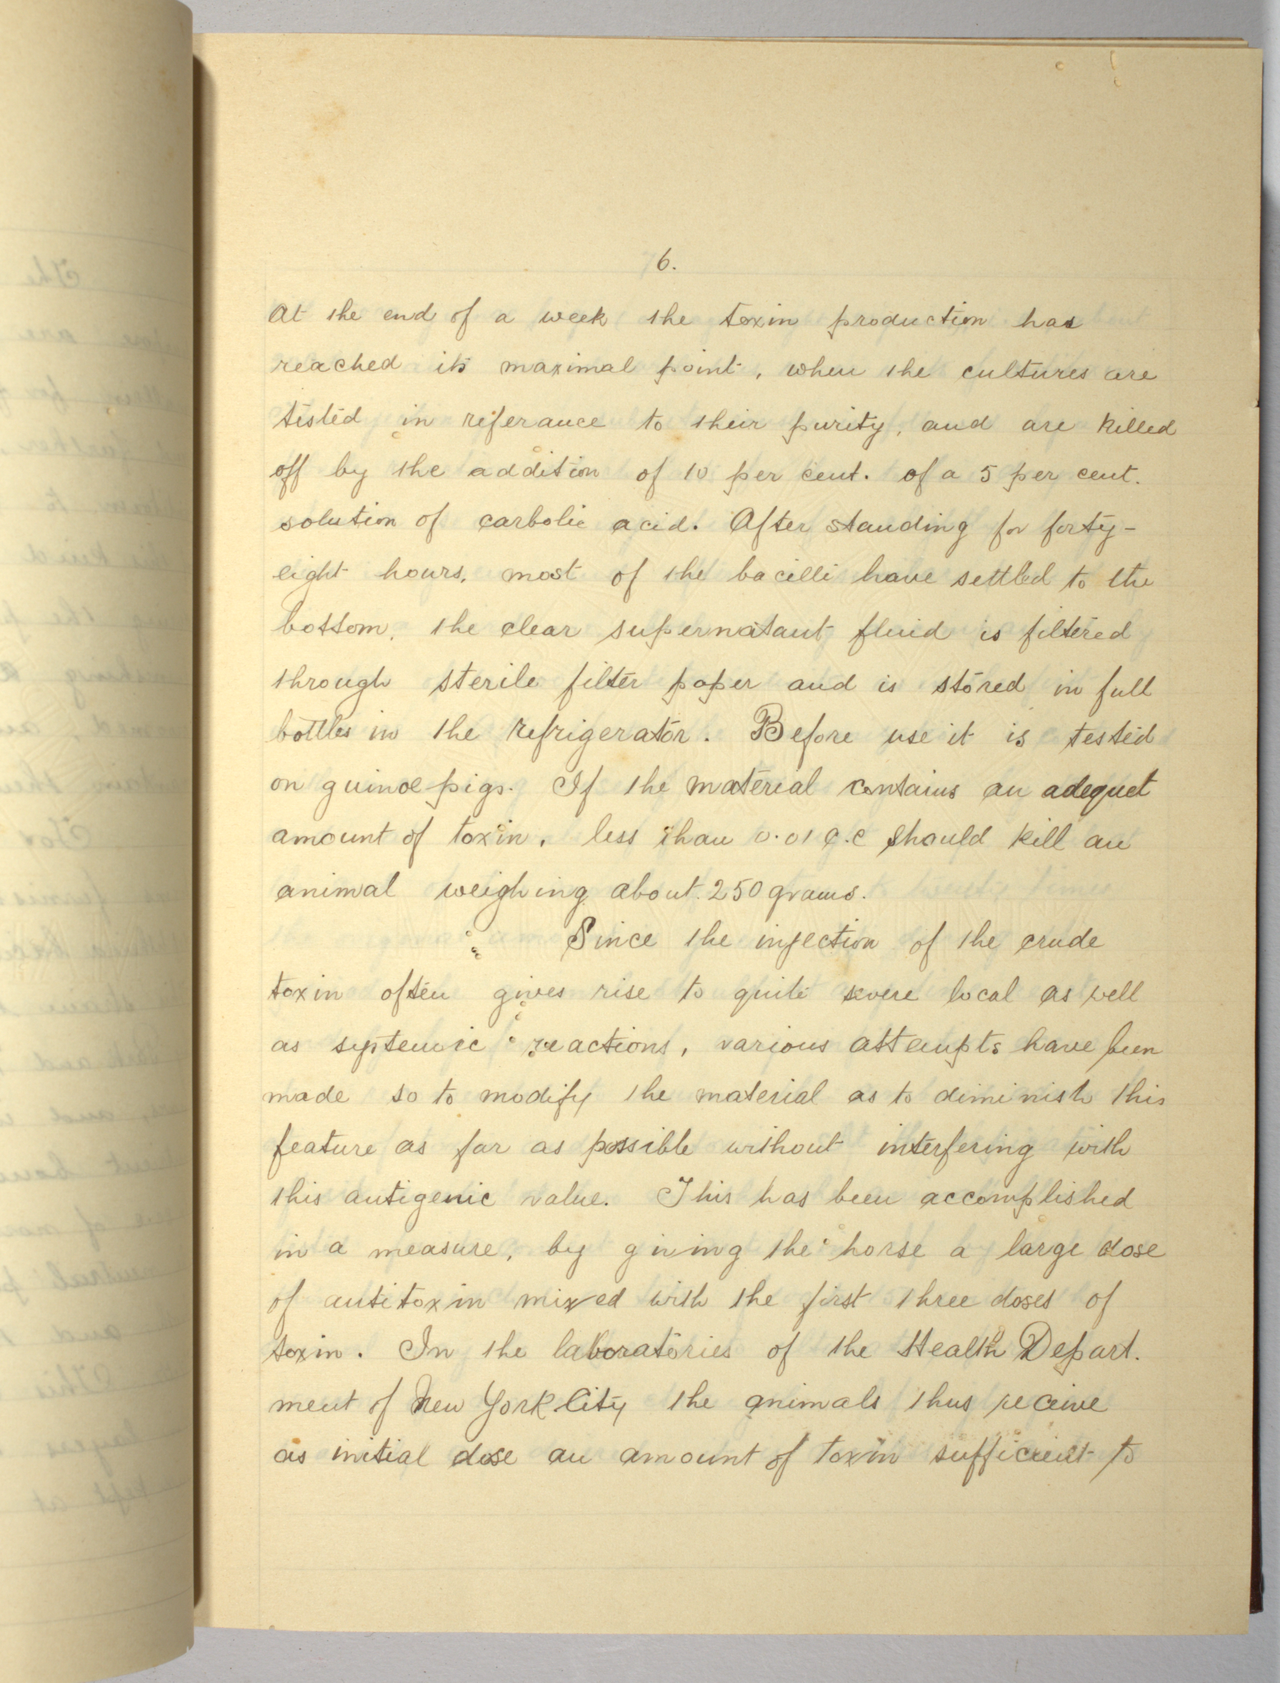 6.
At the end of a week the toxin production has
reached its maximal point, when the cultures are
tested in referance to their purity, and are killed
off by the addition of 10 per cent. of a 5 per cent.
solution of carbolic acid. After standing for forty-
eight hours, most of the bacilli have settled to the
bottom, the clear supernatant fluid is filtered
through sterile filter paper and is stored in full
bottles in the refrigerator. Before use it is tested
on guinea pigs. If the material contains an adequet
amount of toxin, less than 0.01 c.c should kill an
animal weighing about 250 grams.
Since the injection of the crude
toxin often gives rise to quite severe local as well
as systemic reactions, various attempts have been
made so to modify the material as to diminish this
feature as far as possible without interfering with
this antigenic value. This has been accomplished
in a measure, by giving the horse a large dose
of antitoxin mixed with the first three doses of
toxin. In the laboratories of the Health Depart.
ment of New York City the animals thus receive
as initial dose an amount of toxin sufficient to